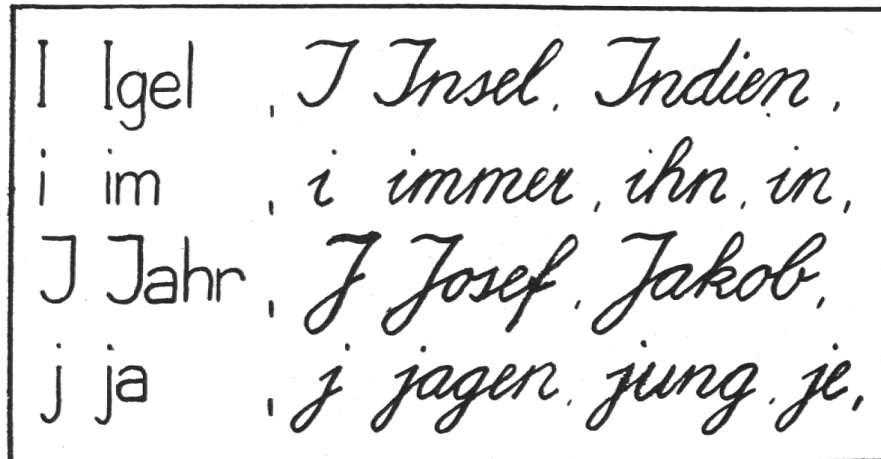 I Igel , I Insel, Indien,
i im , i immer, ihn, in,
J Jahr , J Josef, Jakob,
j ja , j jagen, jung, je,